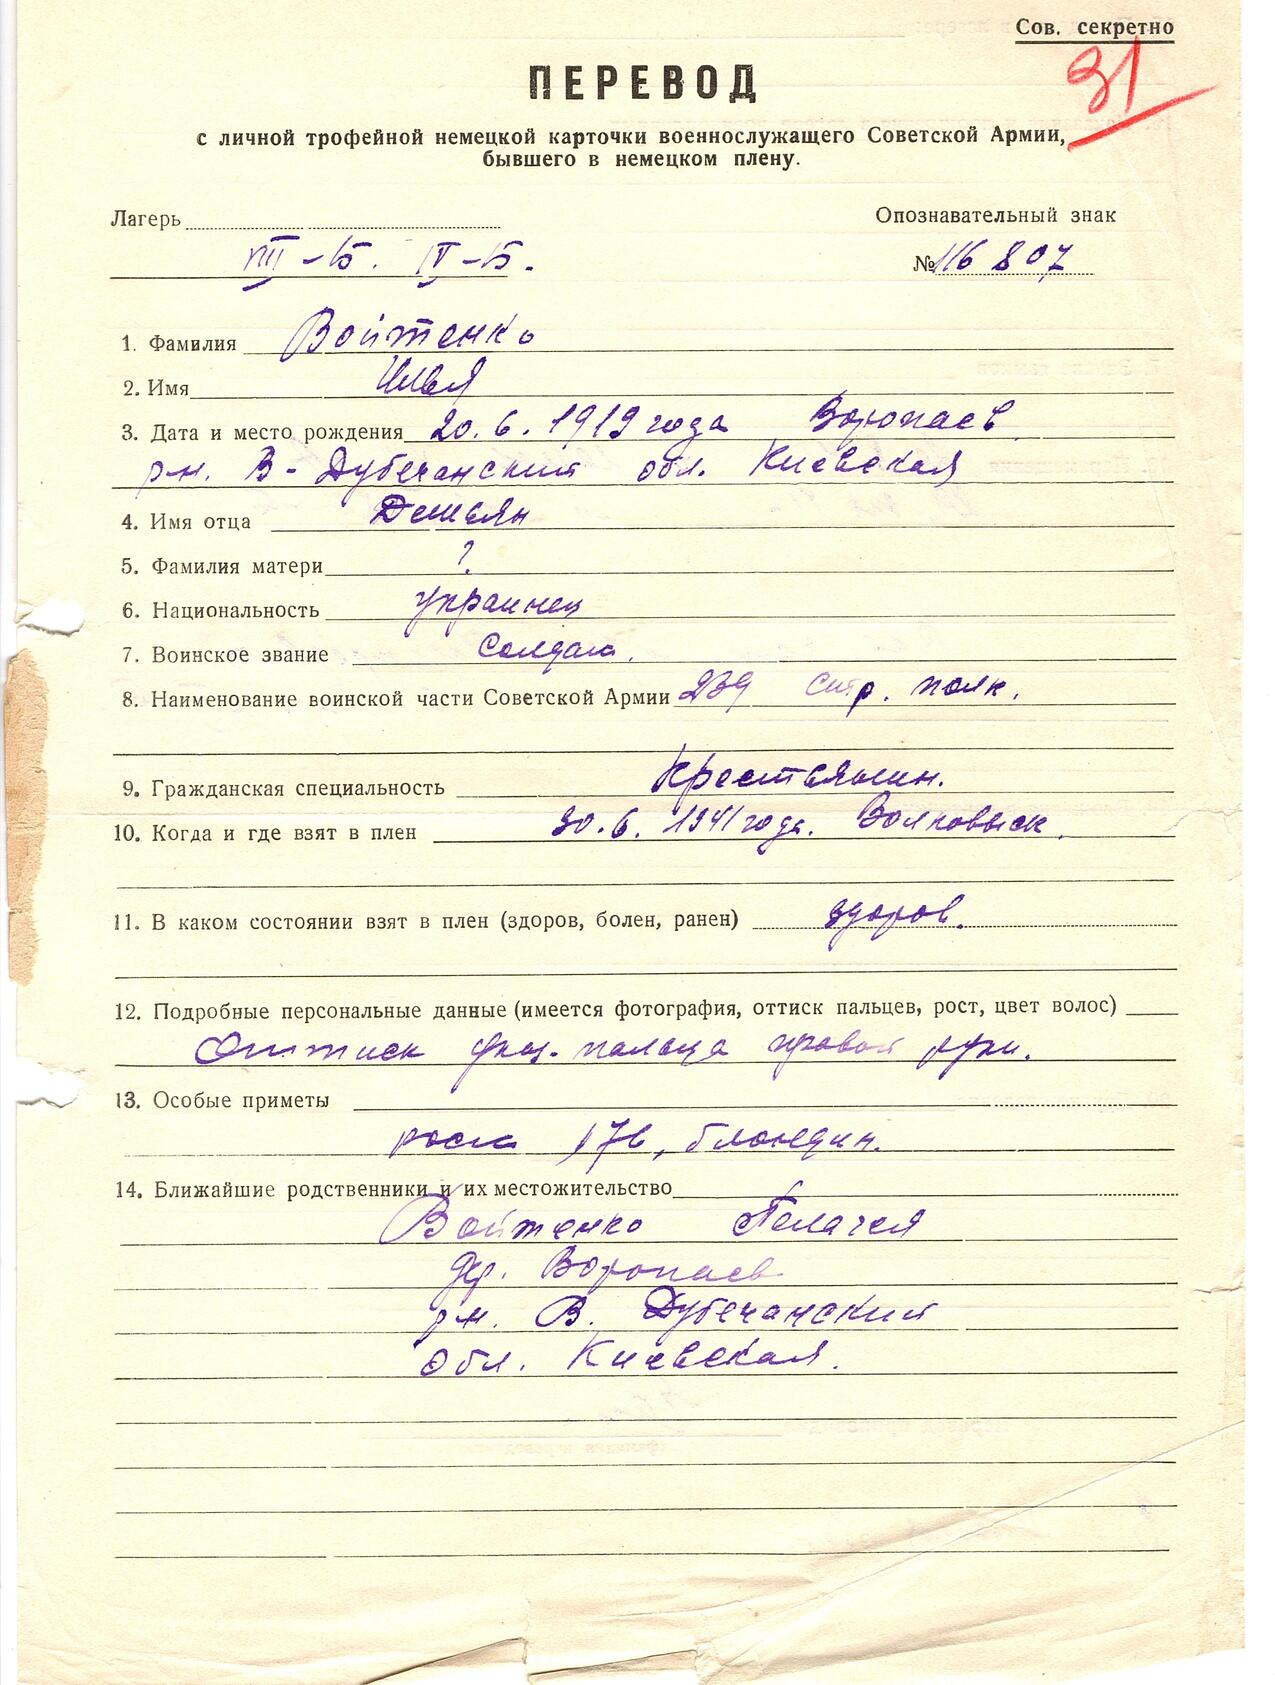 Сов. секретно
31
ПЕРЕВОД
с личной трофейной немецкой карточки военнослужащего Советской Армии,
бывшего в немецком плену.
Лагерь
Опознавательный знак
VIII-Б. IV-Б.
№ 116 807
1. Фамилия Войтенко
2. Имя Илья
3. Дата и место рождения 20.6.1919 года Воропаев
р-н. В-Дубечанский обл. Киевская
4. Имя отца Демьян
5. Фамилия матери ?
6. Национальность украинец
7. Воинское звание Солдат.
8. Наименование воинской части Советской Армии 239 стр. полк.
9. Гражданская специальность Крестьянин.
10. Когда и где взят в плен 30.6.1941 года. Волковыск.
11. В каком состоянии взят в плен (здоров, болен, ранен) здоров.
12. Подробные персональные данные (имеется фотография, оттиск пальцев, рост, цвет волос)
Оттиск указ. пальца правой руки.
13. Особые приметы
рост 176, блондин.
14. Ближайшие родственники и их местожительство
Войтенко Пелагея
дер. Воропаев
р-н. В. Дубечанский
обл. Киевская.